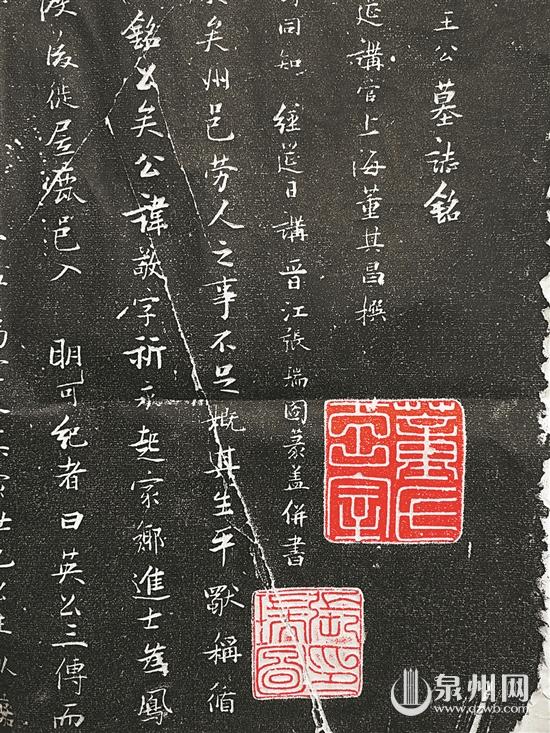 王公墓誌銘
廷講官上海董其昌撰
同知 經筵日講晉江張瑞圖篆盖併書
矣州邑劳人之事不足概其生平獸稱循
銘公矣公諱敬字祈永起家鄉進士為鳳
後徙居鹿邑入 明可紀者曰英公三傳而
董氏玄宰
張瑞圖印
泉州网
www.qzwb.com